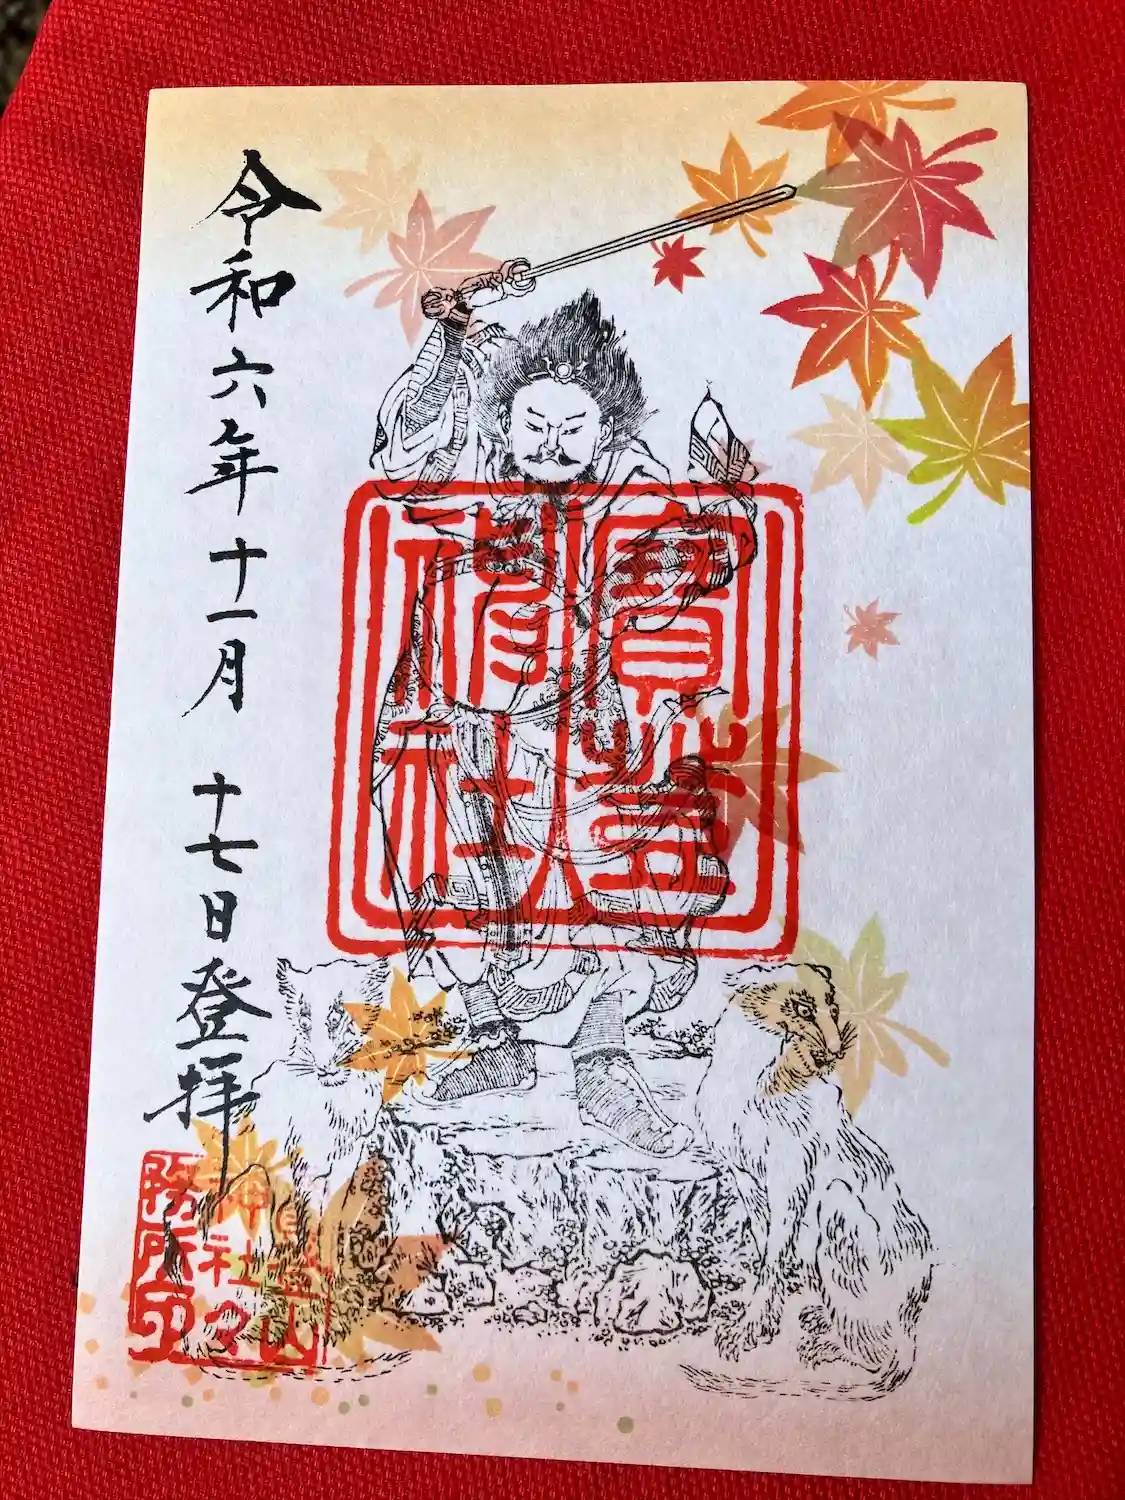 寶登
神社
令和六年十一月 十七日登拝
寶登山
神社々
務所印